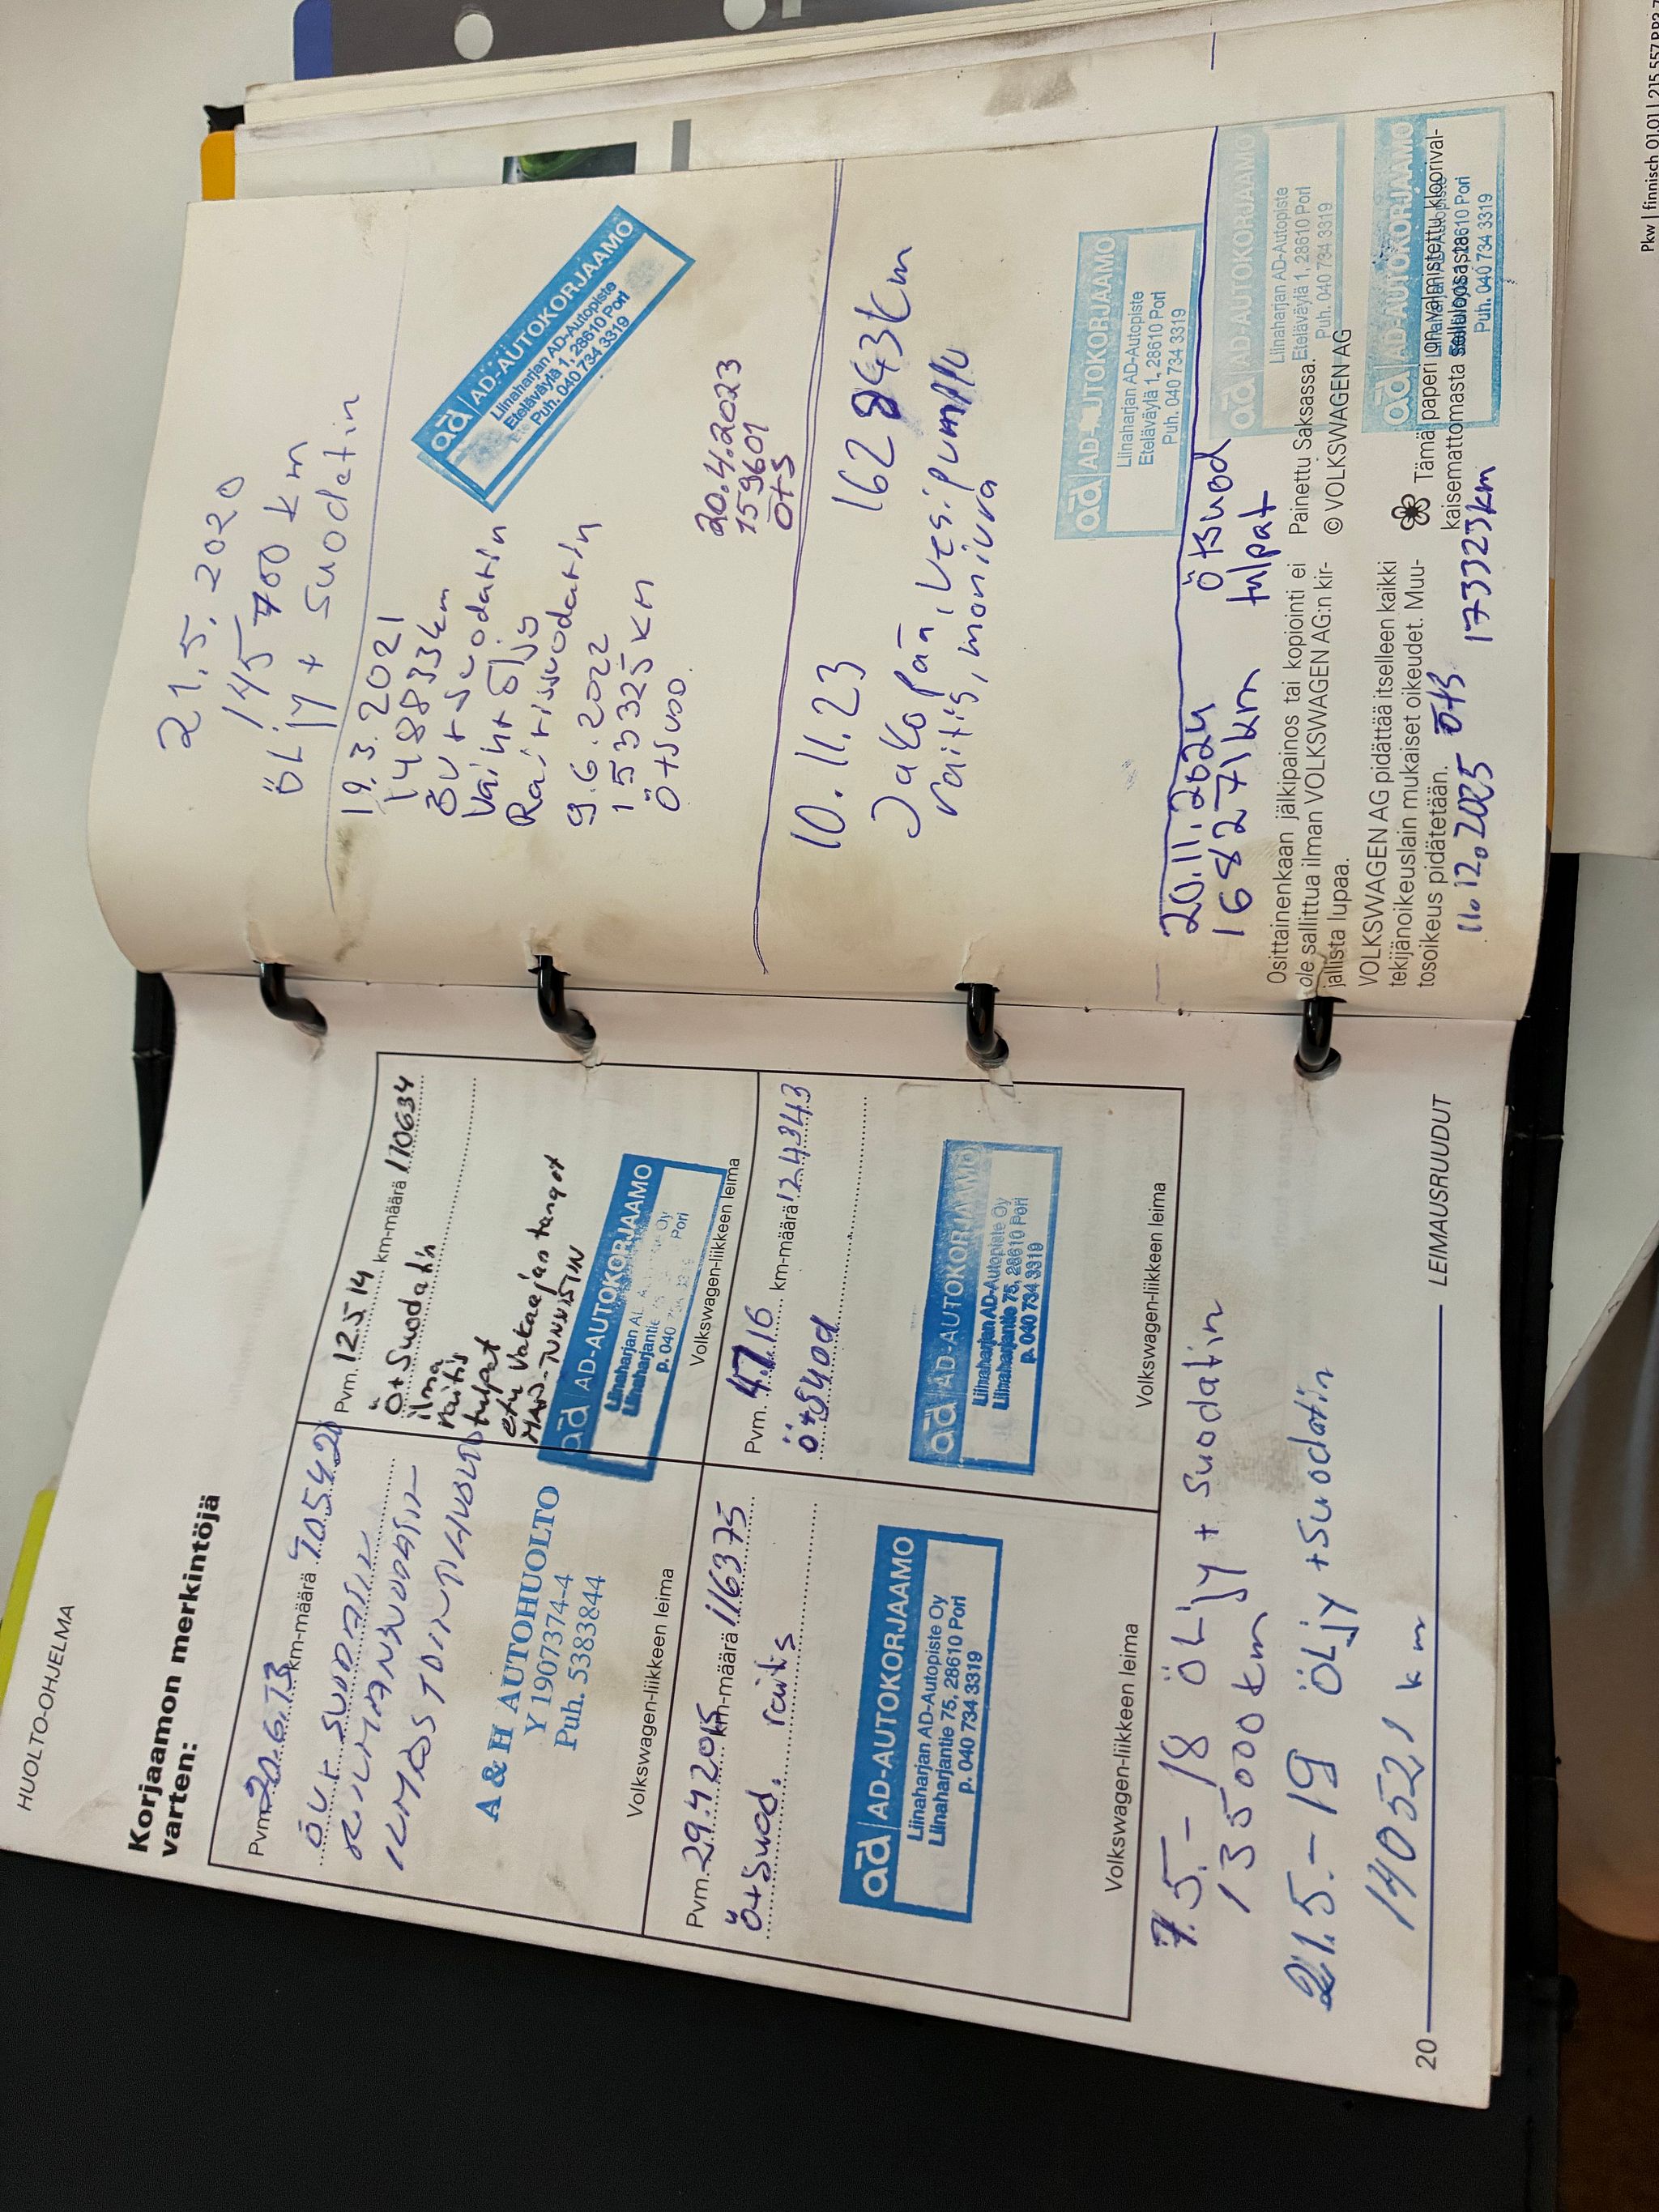 HUOLTO-OHJELMA
Korjaamon merkintöjä
varten:
Pvm. 20.6.13 km-määrä 105420
ÖLJ+ SUODATIN
KMAS TOINTIHUOLTO
A & H AUTOHUOLTO
Y 1907374-4
Puh. 5383844
Volkswagen-liikkeen leima
Pvm. 12.5 14 km-määrä 110634
Ö+Suodatin
ilma
raitis
tulpat
etu Vakaajan tangot
MAP-TUNNISTIN
ad AD-AUTOKORJAAMO
Liinaharjan AD-Autopiste Oy
Liinaharjantie 75, 28610 Pori
p. 040 734 3319
Volkswagen-liikkeen leima
Pvm. 29.4 2015 km-määrä 116375
Ö+Suod. raitis
ad AD-AUTOKORJAAMO
Liinaharjan AD-Autopiste Oy
Liinaharjantie 75, 28610 Pori
p. 040 734 3319
Volkswagen-liikkeen leima
Pvm. 4.7.16 km-määrä 124343
Ö+Suod
ad AD-AUTOKORJAAMO
Liinaharjan AD-Autopiste Oy
Liinaharjantie 75, 28610 Pori
p. 040 734 3319
Volkswagen-liikkeen leima
7.5.-18 ÖLjy + Suodatin
135000 km
21.5.-19 ÖLjy +Suodatin
140521 km
20
LEIMAUSRUUDUT
21.5.2020
145 700 km
ÖLjy + Suodatin
19.3.2021
148833km
ÖLJ+Suodatin
Vaiht Öljy
Raitissuodatin
9.6.2022
153325 KM
Ö+SUOD.
ad AD-AUTOKORJAAMO
Liinaharjan AD-Autopiste
Eteläväylä 1, 28610 Pori
Puh. 040 734 3319
20.4.2023
159601
Ö+S
10.11.23 162843km
Jakopää, vesipumppu
raitis, moniura
ad AD-AUTOKORJAAMO
Liinaharjan AD-Autopiste
Eteläväylä 1, 28610 Pori
Puh. 040 734 3319
20.11.2024 Ö+suod
168271km tulpat
ad AD-AUTOKORJAAMO
Liinaharjan AD-Autopiste
Eteläväylä 1, 28610 Pori
Puh. 040 734 3319
Osittainenkaan jälkipainos tai kopiointi ei
ole sallittua ilman VOLKSWAGEN AG:n kir-
jallista lupaa.
VOLKSWAGEN AG pidättää itselleen kaikki
tekijänoikeuslain mukaiset oikeudet. Muu-
tosoikeus pidätetään.
Painettu Saksassa.
© VOLKSWAGEN AG
Tämä paperi on valmistettu kloorival-
kaisemattomasta selluloosasta.
ad AD-AUTOKORJAAMO
Liinaharjan AD-Autopiste
Eteläväylä 1, 28610 Pori
Puh. 040 734 3319
11.12.2025 Ö+S 173323km
Pkw | finnisch 01.01 | 215.557.RP3.7